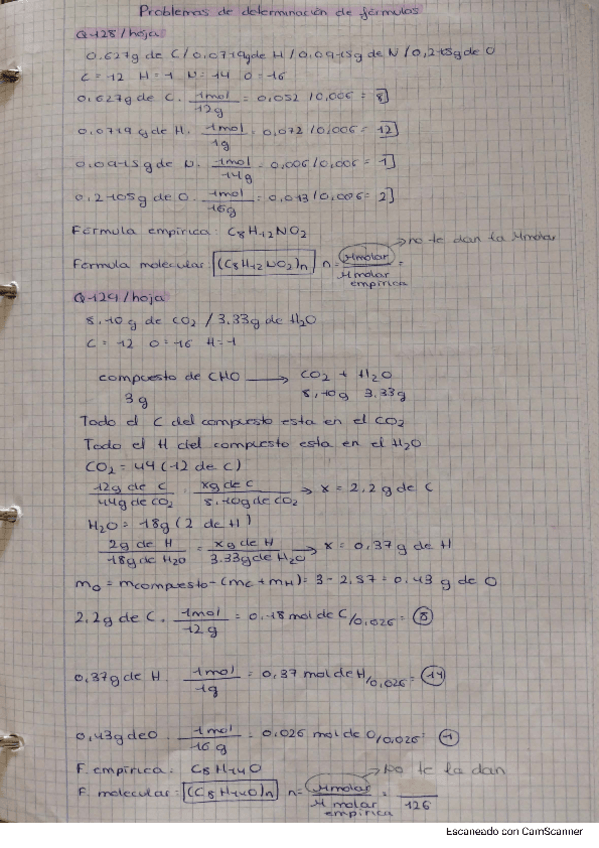 Problemas de determinación de fórmulas
Q-128/hoja
0.627g de C/0.0719g de H/0.0915g de N/0,215g de O
C = 12 H = 1 N = 14 O = 16
0.627g de C. 1mol/12g = 0,052 /0,006 = 8
0.0719 g de H. 1mol/1g = 0,072 /0,006 = 12
0.0915g de N. 1mol/14g = 0,006/0,006 = 1
0,2105g de O. 1mol/16g = 0,013/0,006 = 2
Fórmula empírica: C8H12NO2
→ no te dan la Mmolar
Fórmula molecular: (C8H12NO2)n n = Mmolar/Mmolar empírica =
Q-129/hoja
8,10g de CO2 / 3.33g de H2O
C = 12 O = 16 H = 1
compuesto de CHO → CO2 + H2O
3g 8,10g 3.33g
Todo el C del compuesto esta en el CO2
Todo el H del compuesto esta en el H2O
CO2 = 44 (12 de C)
12g de C/44g de CO2 = xg de C/8.10g de CO2 → x = 2,2 g de C
H2O = 18g (2 de H)
2g de H/18g de H2O = xg de H/3.33g de H2O → x = 0,37 g de H
mO = mcompuesto - (mC + mH) = 3 - 2,57 = 0,43 g de O
2.2g de C. 1mol/12g = 0,18 mol de C/0,026 = 8
0,37g de H. 1mol/1g = 0,37 mol de H/0,026 = 14
0,43g de O. 1mol/16g = 0,026 mol de O/0,026 = 1
F. empírica: C8H14O
→ No te la dan
F. molecular: (C8H14O)n n = Mmolar/M molar empírica = /126
Escaneado con CamScanner